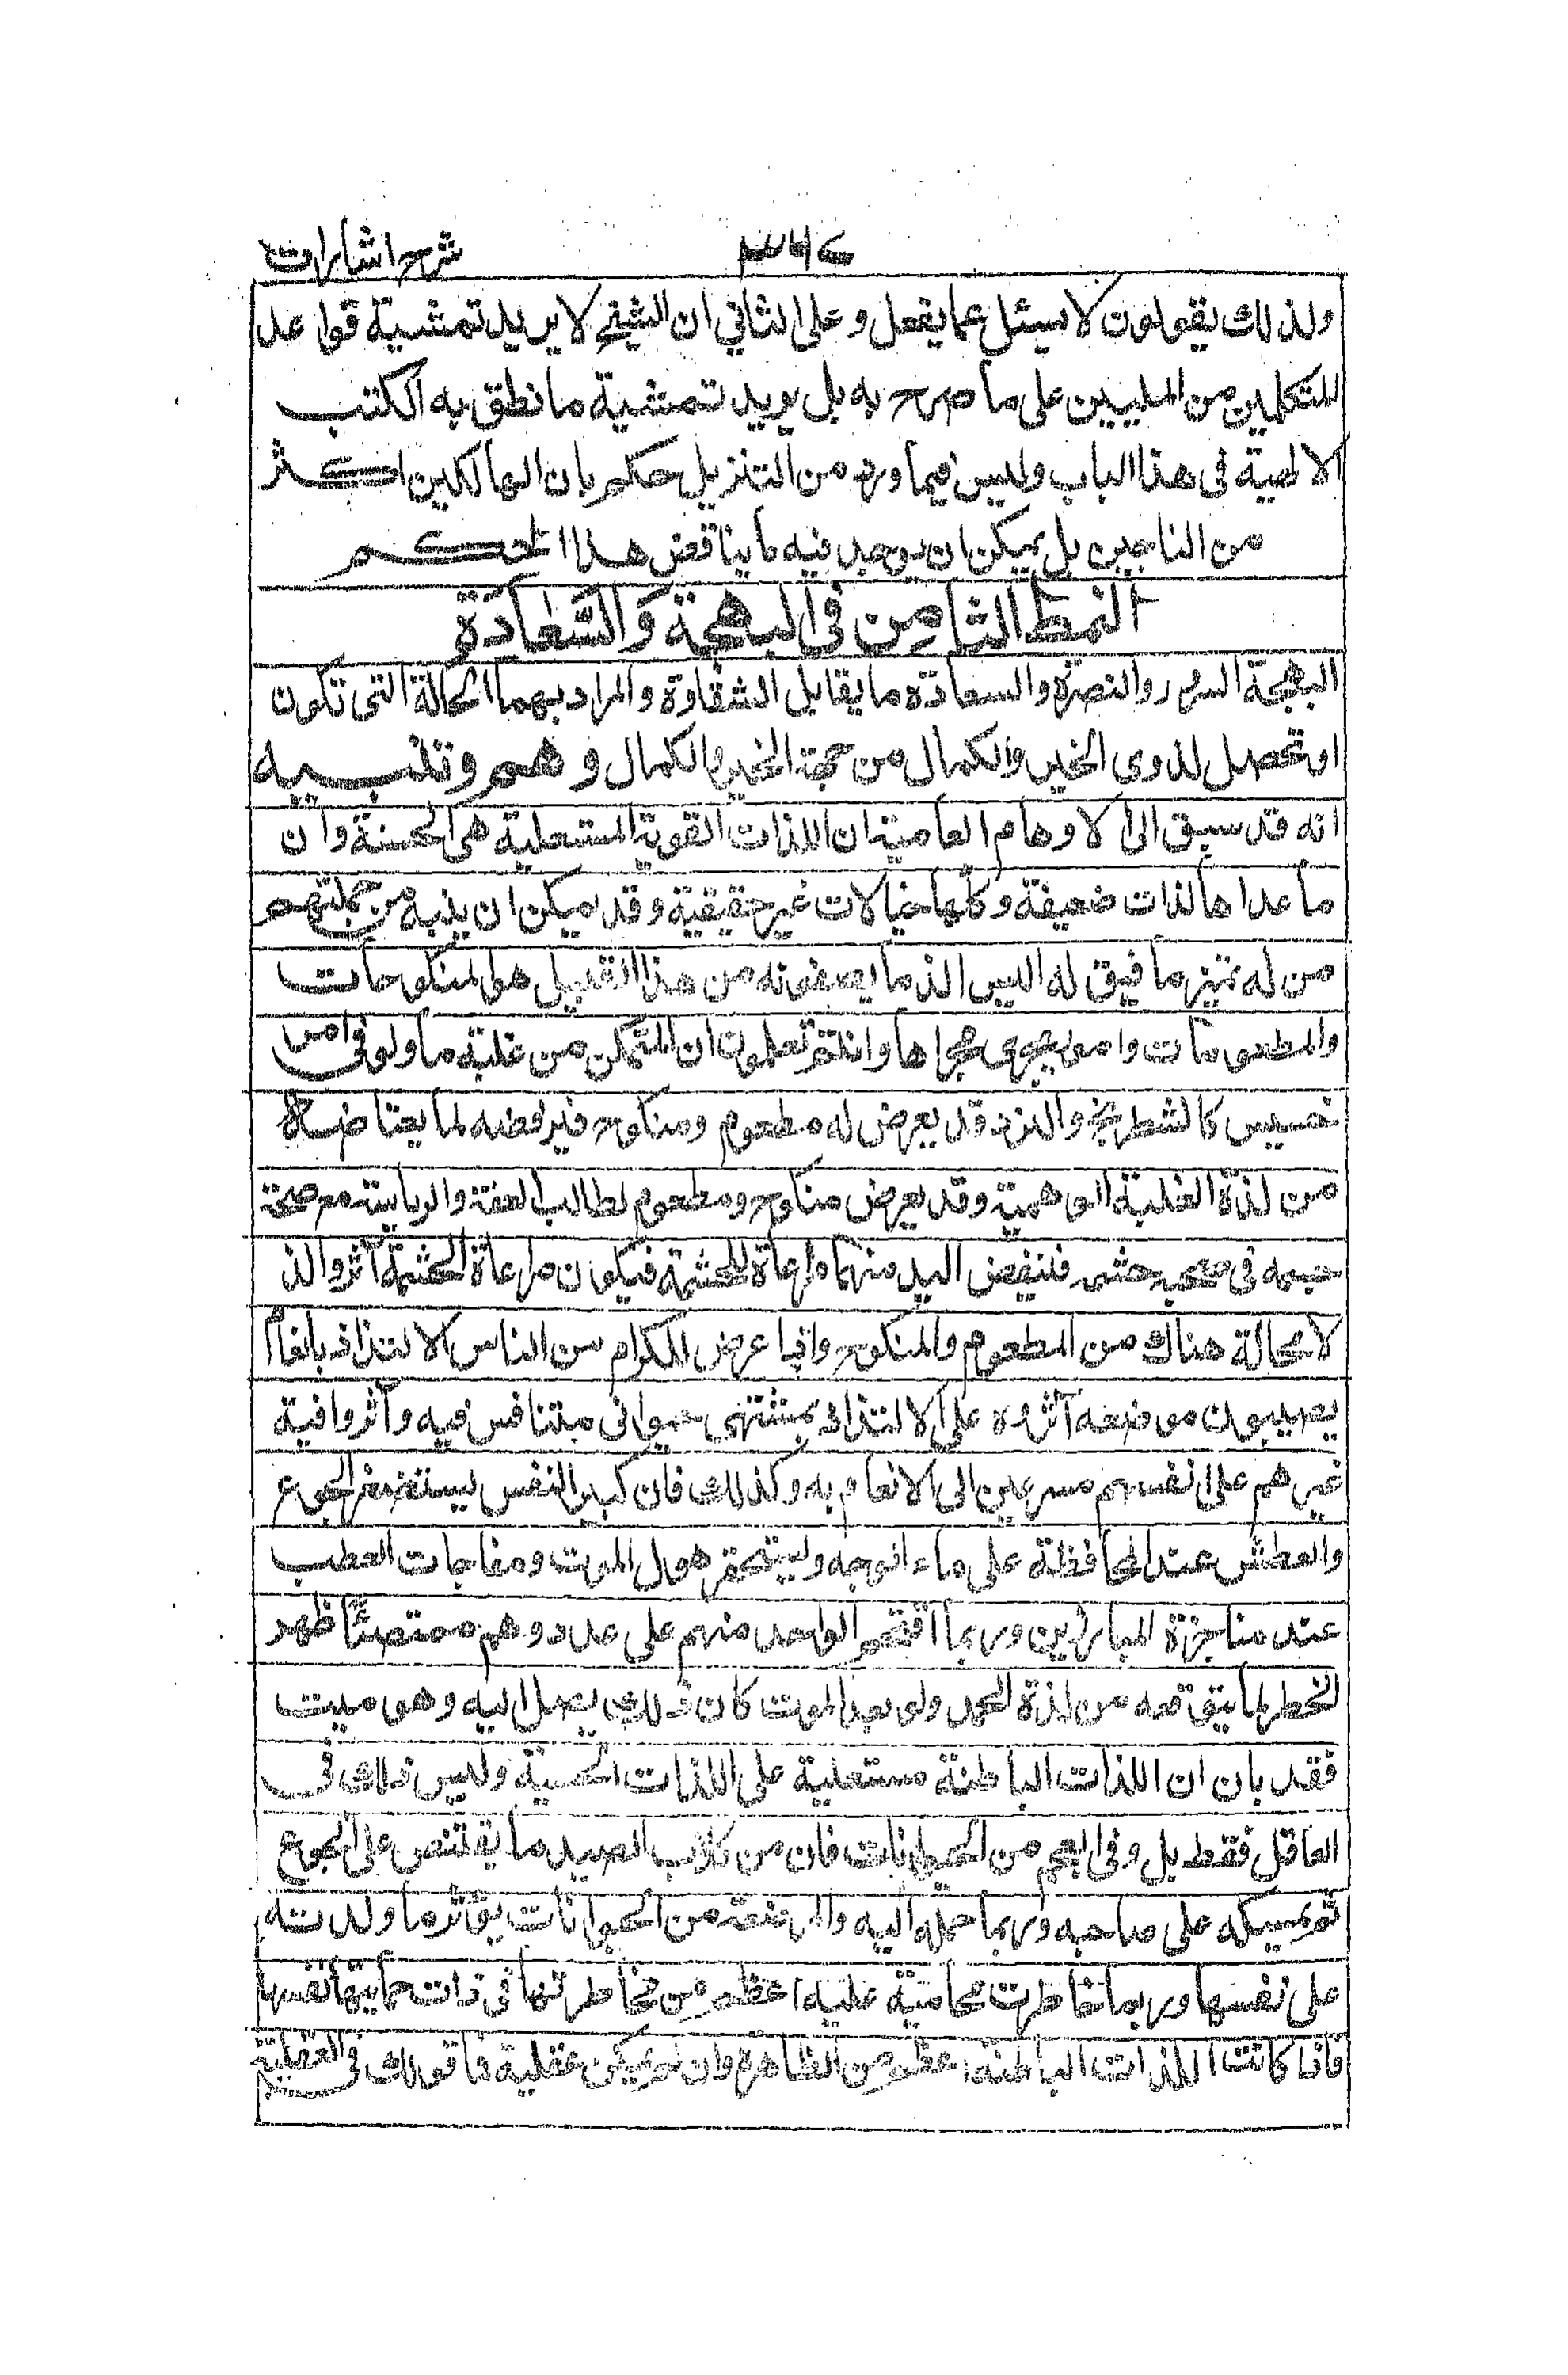 شرح اشارات
ولذلك يقولون لا يسئل عما يفعل وعلى الثاني ان الشيخ لا يريد تمشية قواعد
المتكلمين من المليين على ما صرح به بل يريد تمشية ما نطق به الكتب
الالهية فى هذا الباب وليس فيما ورد من التنزيل حكم بان الهالكين اكثر
من الناجين بل يمكن ان يوجد فيه ما يناقض هذا الحكم
النمط الثامن في البهجة والسعادة
البهجة السرور والنضرة والسعادة ما يقابل الشقاوة والمراد بهما الحالة التى تكون
او تحصل لذوى الخير والكمال من جهة الخير والكمال وهم وتنبيه
انه قد سبق الى الاوهام العامية ان اللذات القوية المستعلية هى الحسية وان
ما عداها لذات ضعيفة وكلها خيالات غير حقيقية وقد يمكن ان ينبه من جملتهم
من له تميز ما فيق له اليس الذ ما يصفونه من هذا القبيل هو المنكوحات
والمطعومات وامور يجرى مجراها وانتم تعلمون ان المتمكن من غلبة ما ولو فى امر
خسيس كالشطرنج والنرد قد يعرض له مطعوم ومنكوح فيرفضه لما يعتاضه
من لذة الغلبة الوهمية وقد يعرض منكوح ومطعوم لطالب العفة والرياسة مع صحة
جسمه فى صحبة حشمه فينفض اليد منهما مراعاة للحشمة فيكون مراعاة الحشمة آثر والذ
لا محالة هناك من المطعوم والمنكوح واذا عرض للكرام من الناس الالتذاذ بانعام
يصيبون موضعه آثروه على الالتذاذ بمشتهى حيوانى متنافس فيه وآثروا فيه
غيرهم على انفسهم مسرعين الى الانعام به وكذلك فان كبير النفس يستصغر الجوع
والعطش عند المحافظة على ماء الوجه ويستحقر هول الموت ومفاجات العطب
عند مناجزة المبارزين وربما اقتحم الواحد منهم على عدد دهم ممتطئا ظهر
الخطر لما يتوقعه من لذة الحمد ولو بعد الموت كان ذلك يصل اليه وهو ميت
فقد بان ان اللذات الباطنة مستعلية على اللذات الحسية وليس ذلك فى
العاقل فقط بل وفى العجم من الحيوانات فان من كلاب الصيد ما يقتنص على الجوع
ثم يمسكه على صاحبه وربما حمله اليه والمرضعة من الحيوانات يؤثر ما ولدته
على نفسها وربما خاطرت محامية عليه اعظم من مخاطرتها فى ذات حمايتها نفسها
فاذا كانت اللذات الباطنة اعظم من الظاهرة وان لم يكن عقلية فما قولك فى العقلية